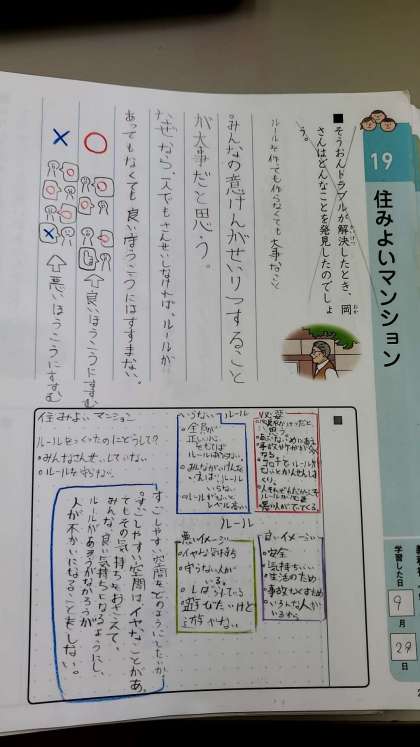 19
住みよいマンション
■そうおんトラブルが解決したとき、岡
さんはどんなことを発見したのでしょ
う。
おか
ルールを作ても作らなくても大事なこと
みんなの意けんがせいりつすること
が大事だと思う。
なぜなら、一人でもさんせいしなければ、ルールが
あってもなくても良いほうこうにはすすまない。
○
⇧良いほうこうにすすむ
×
⇧悪いほうこうにすすむ
住みよいマンション
ルールをつくったのにどうして?
○みんなさんせいしていない
○ルールを守らない。
いらない ルール
○全員が
正しい心
をもてば
ルールはいらない。
○みんながいけんを
いえば、ルール
いらない。
必要
ルール
悪いイメージ
○イヤな気持ち
○守らない人が
いる。
○しばられている
遊びたいけど
遊べない
良いイメージ
○安全
○気持ちいい
○生活のため
○事故なくすため
○いろんな人が
いるから
すごしやすい空間をどのようにしたいか
すごしやすい空間はイヤなことがあっ
てもその気持ちをおさえて、
みんな良い気持ちになるようにし、
ルールがあろうがなかろうが
人が不かいになることをしない。
学習した日
9
月
29
日